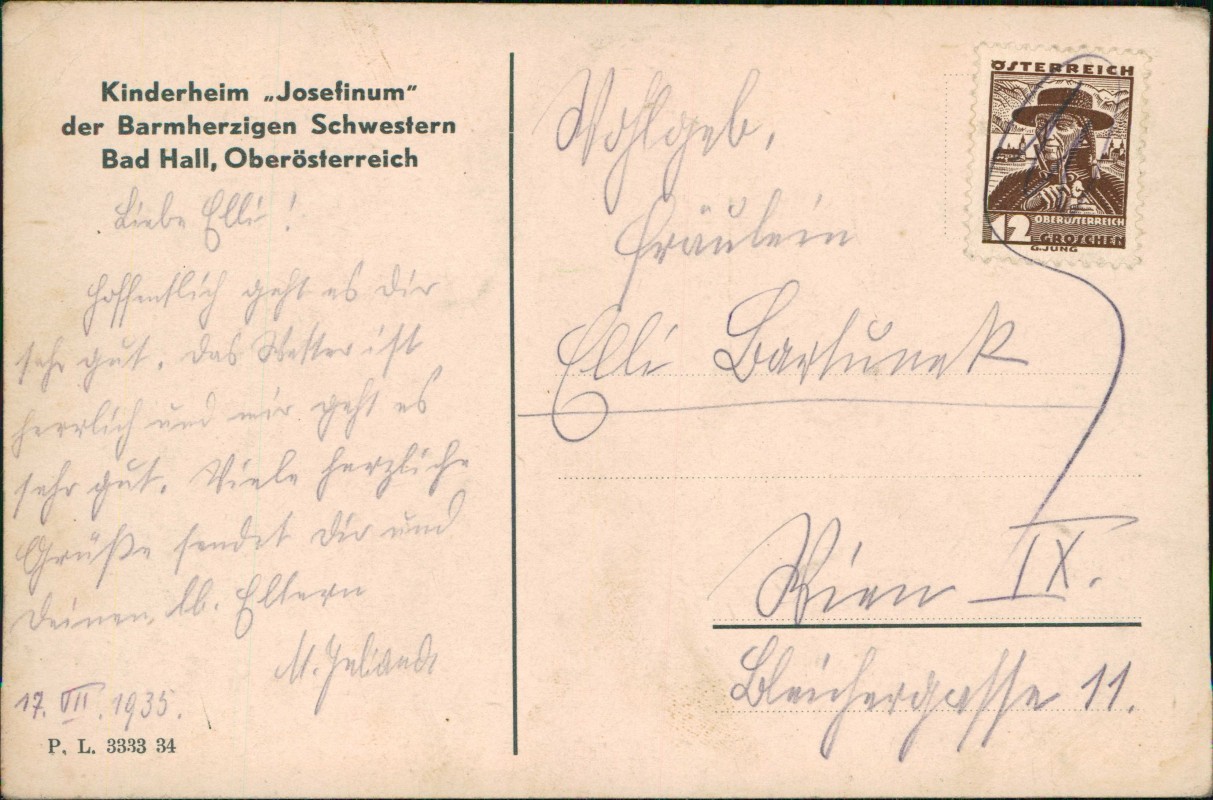 Kinderheim „Josefinum"
der Barmherzigen Schwestern
Bad Hall, Oberösterreich
Liebe Elli!
Hoffentlich geht es Dir
sehr gut. Das Wetter ist
herrlich und mir geht es
sehr gut. Viele herzliche
Grüße sendet Dir und
Deinen lb. Eltern
17. VII. 1935.
P. L. 3333 34
ÖSTERREICH
OBERÖSTERREICH
12 GROSCHEN
G.JUNG
Wohlgeb.
Fräulein
Elli Bartunek
Wien IX.
Bleichergasse 11.